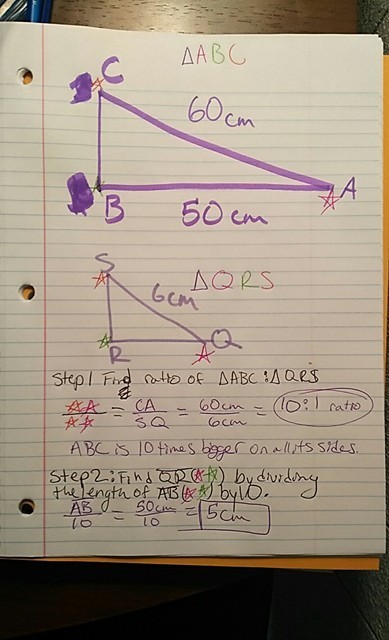 △ABC
C
60cm
A
B
50cm
S
△QRS
6cm
R
Q
Step 1 Find ratio of △ABC:△QRS
☆☆/☆☆ = CA/SQ = 60cm/6cm = 10:1 ratio
ABC is 10 times bigger on all its sides.
Step2: Find QR(☆☆) by dividing
the length of AB(☆☆) by 10.
AB/10 = 50cm/10 = 5cm